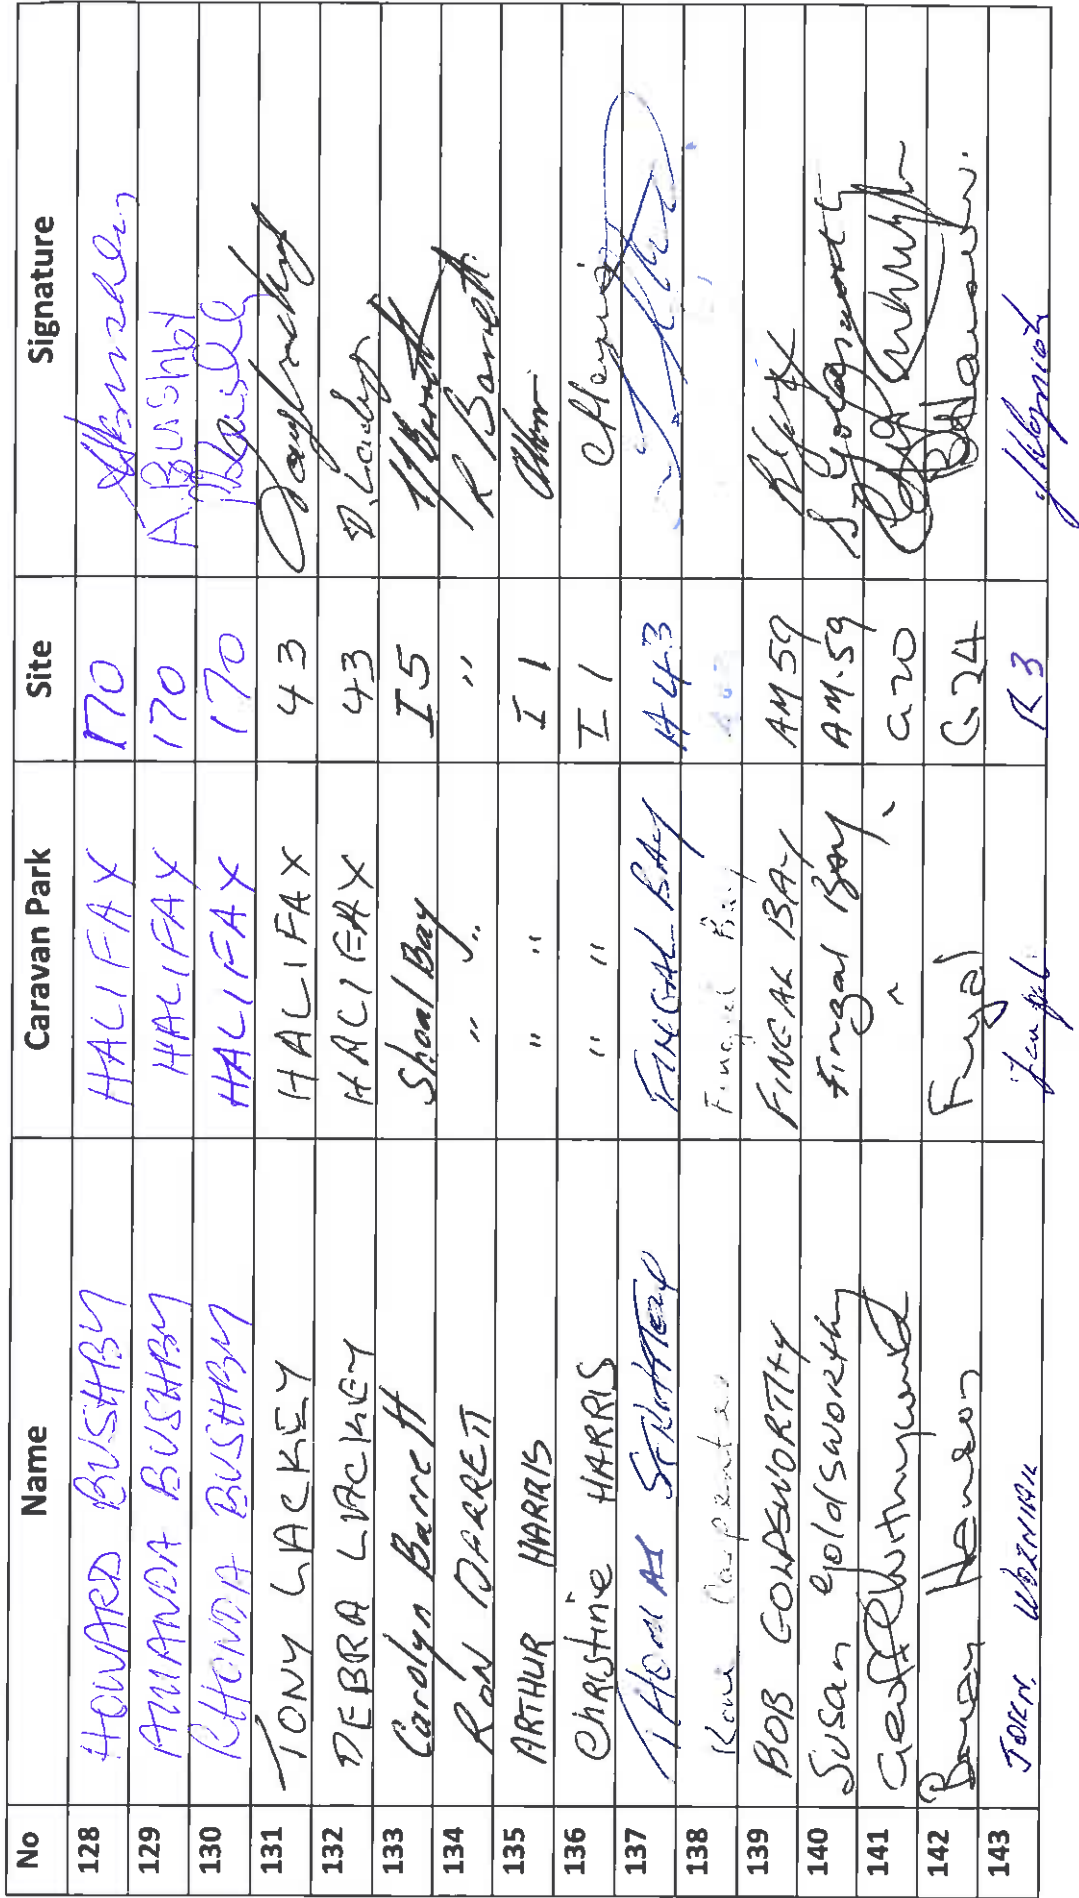 No Name Caravan Park Site Signature
128 HOWARD BUSHBY HALIFAX 170
129 AMANDA BUSHBY HALIFAX 170 A Bushby
130 RHONDA BUSHBY HALIFAX 170
131 TONY LACKEY HALIFAX 43
132 DEBRA LACKEY HALIFAX 43 D. Lackey
133 Carolyn Barrett Shoal Bay I5
134 RON BARRETT " " " R Barrett
135 ARTHUR HARRIS " " I 1
136 Christine HARRIS " " I 1 C Harris
137 THOMAS FINGAL BAY A43
138 Carpenter Fingal Bay
139 BOB GOLDSWORTHY FINGAL BAY AM 59
140 Susan Goldsworthy Fingal Bay AM-59 S. Goldsworthy
141 G20
142 Fingal G24
143 R3